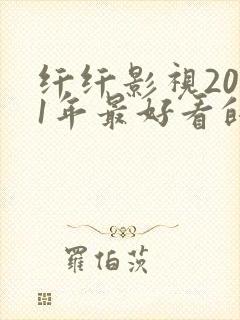 纤纤影視20
1年最好看的
羅伯茨